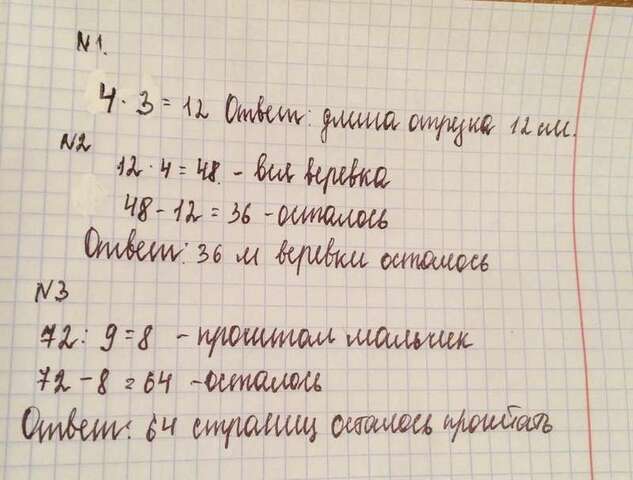 N1.
4 · 3 = 12 Ответ: длина отрузка 12 см.
N2
12 · 4 = 48. - вся веревка
48 - 12 = 36 - осталось
Ответ: 36 м веревки осталось
N3
72 : 9 = 8 - прочитал мальчик
72 - 8 = 64 - осталось
Ответ: 64 страниц осталось прочитать